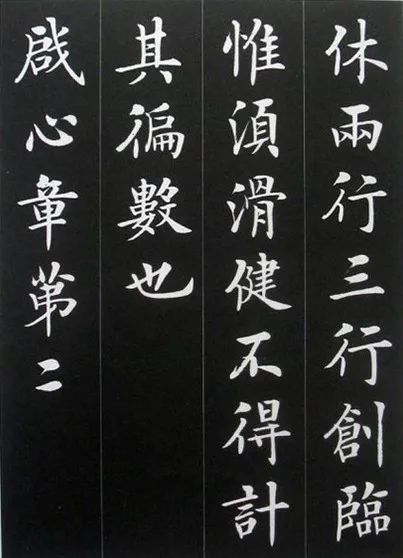 休兩行三行創臨
惟須滑健不得計
其徧數也
啟心章第二